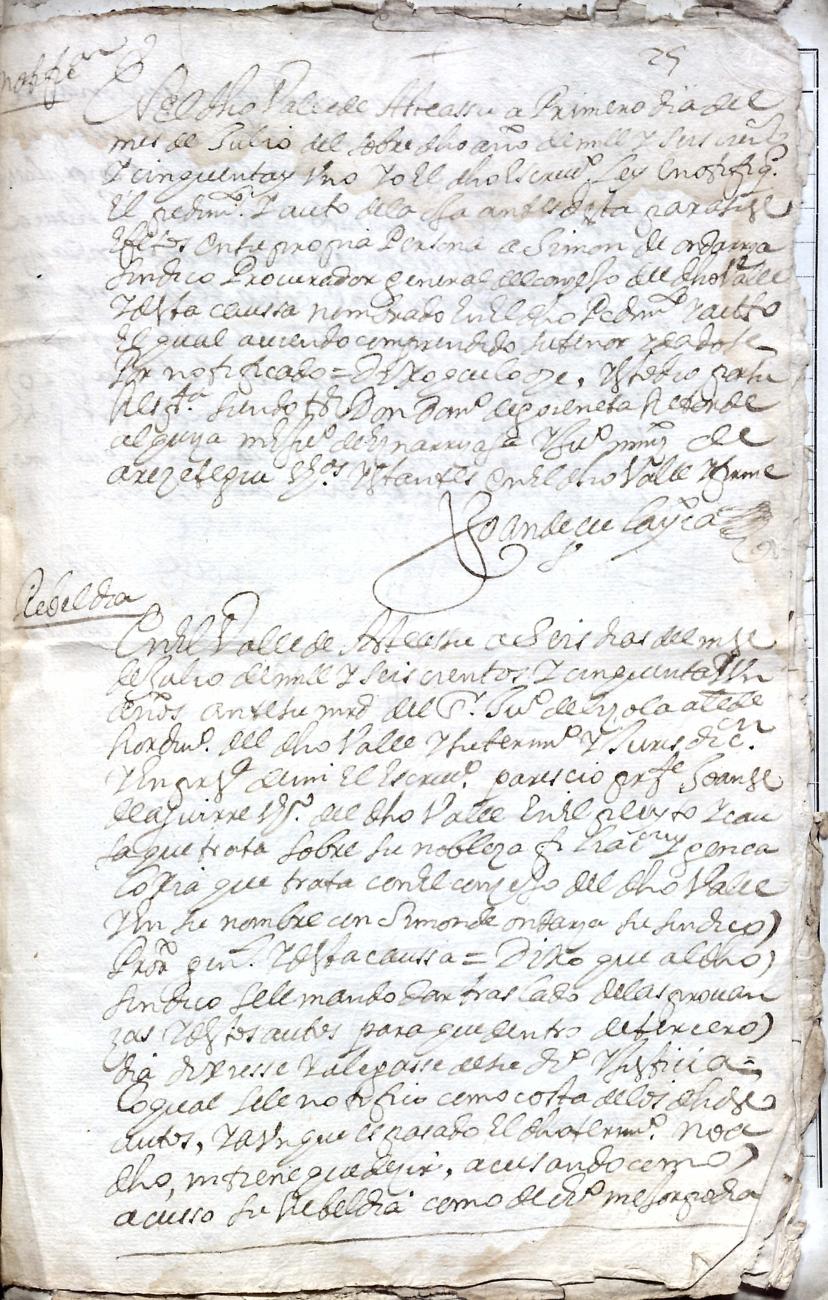 25
notifiᵒⁿ
En el dho Valle de Ateassu a Primero dia del
mes de Julio del sobre dho año de mill y seis cientˢ
y cinquenta y uno yo El dho Escriuº. Ley E notifiq.
El pedimᵗ. y auto dela oja antes desta para sus
Efetos en su propria Persona a Simon de ondarra
Sindico Procurador general del concejo del dho Valle
y desta caussa nombrado En El dho Pedimᵗ y auto
El qual auiendo comprendido su tenor y dadose
Por notificado = Dixo que lo oye, y esto dio por su
Respᵗᵃ siendo tsº Don Domº de goieneta Retor de
alquiça
arezetegui tsºs estantes en El dho Valle y firme
Joan de
Rebeldia
En El Valle de Ateassu a Seis dias del mes
de Julio de mill y seis cientos y cinquenta y Un
años ante su mrd del Sʳ. Juº de Lizola alcde
hordinº. del dho Valle y su termº y Jurisdicⁿ.
y En presª. de mi El Escriuº. parescio presᵗᵉ Joanes
de aguirre vzº. del dho Valle En El pleyto y cau
sa que trata sobre su nobleza filiacⁿ y genea
logia que trata con El concejo del dho Valle
y En su nombre con Simon de ondarra su sindico
Proʳ genˡ. y desta caussa = Dixo que al dho
sindico se le mando dar traslado delas prouan
zas y destos autos para que dentro de tercero
dia dixesse y alegasse de su drº y Justicia =
Lo qual se le notifico como costa delos dhos
autos, y aunque es pasado El dho termº. no a
dho, ni tiene que desir, acusando como
acusso su Rebeldia como de drº mejor podia